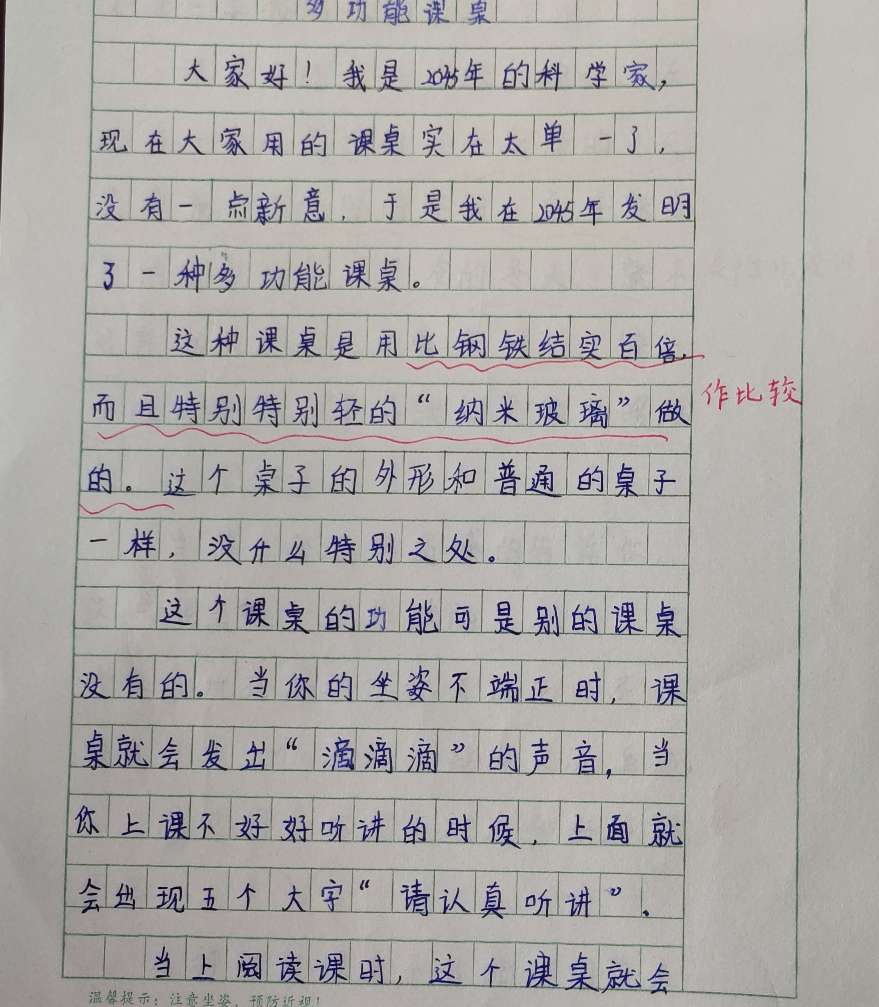 多功能课桌
大家好！我是2045年的科学家，
现在大家用的课桌实在太单一了，
没有一点新意，于是我在2045年发明
了一种多功能课桌。
这种课桌是用比钢铁结实百倍，
而且特别特别轻的“纳米玻璃”做
作比较
的。这个桌子的外形和普通的桌子
一样，没什么特别之处。
这个课桌的功能可是别的课桌
没有的。当你的坐姿不端正时，课
桌就会发出“滴滴滴”的声音，当
你上课不好好听讲的时候，上面就
会出现五个大字“请认真听讲”。
当上阅读课时，这个课桌就会
温馨提示：注意坐姿，预防近视！